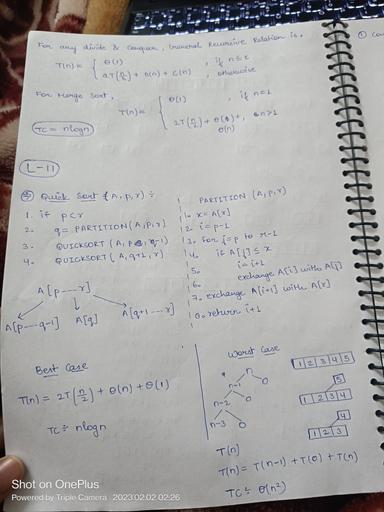 For any divide & Conquer, General Recursive Relation is.
T(n) = { θ(1) , if n≤c
aT(n/b) + D(n) + C(n) , otherwise
For Merge Sort,
T(n) = { θ(1) , if n=1
2T(n/2) + θ(1) + θ(n) , n>1
TC = nlogn
L-11
Quick Sort (A, p, r) ÷
1. if p<r
2. q = PARTITION(A, p, r)
3. QUICKSORT (A, p, q-1)
4. QUICKSORT (A, q+1, r)
PARTITION (A, p, r)
1. x = A[r]
2. i = p-1
3. for j = p to r-1
4. if A[j] ≤ x
5. i = i+1
6. exchange A[i] with A[j]
7. exchange A[i+1] with A[r]
8. return i+1
A[p----r]
A[p----q-1] A[q] A[q+1----r]
Best Case
T(n) = 2T(n/2) + θ(n) + θ(1)
TC ÷ nlogn
Worst Case
n
n-1 0
n-2 0
n-3 0
1 2 3 4 5
5
1 2 3 4
4
1 2 3
T(n)
T(n) = T(n-1) + T(0) + T(n)
TC ÷ θ(n²)
Shot on OnePlus
Powered by Triple Camera 2023.02.02 02:26